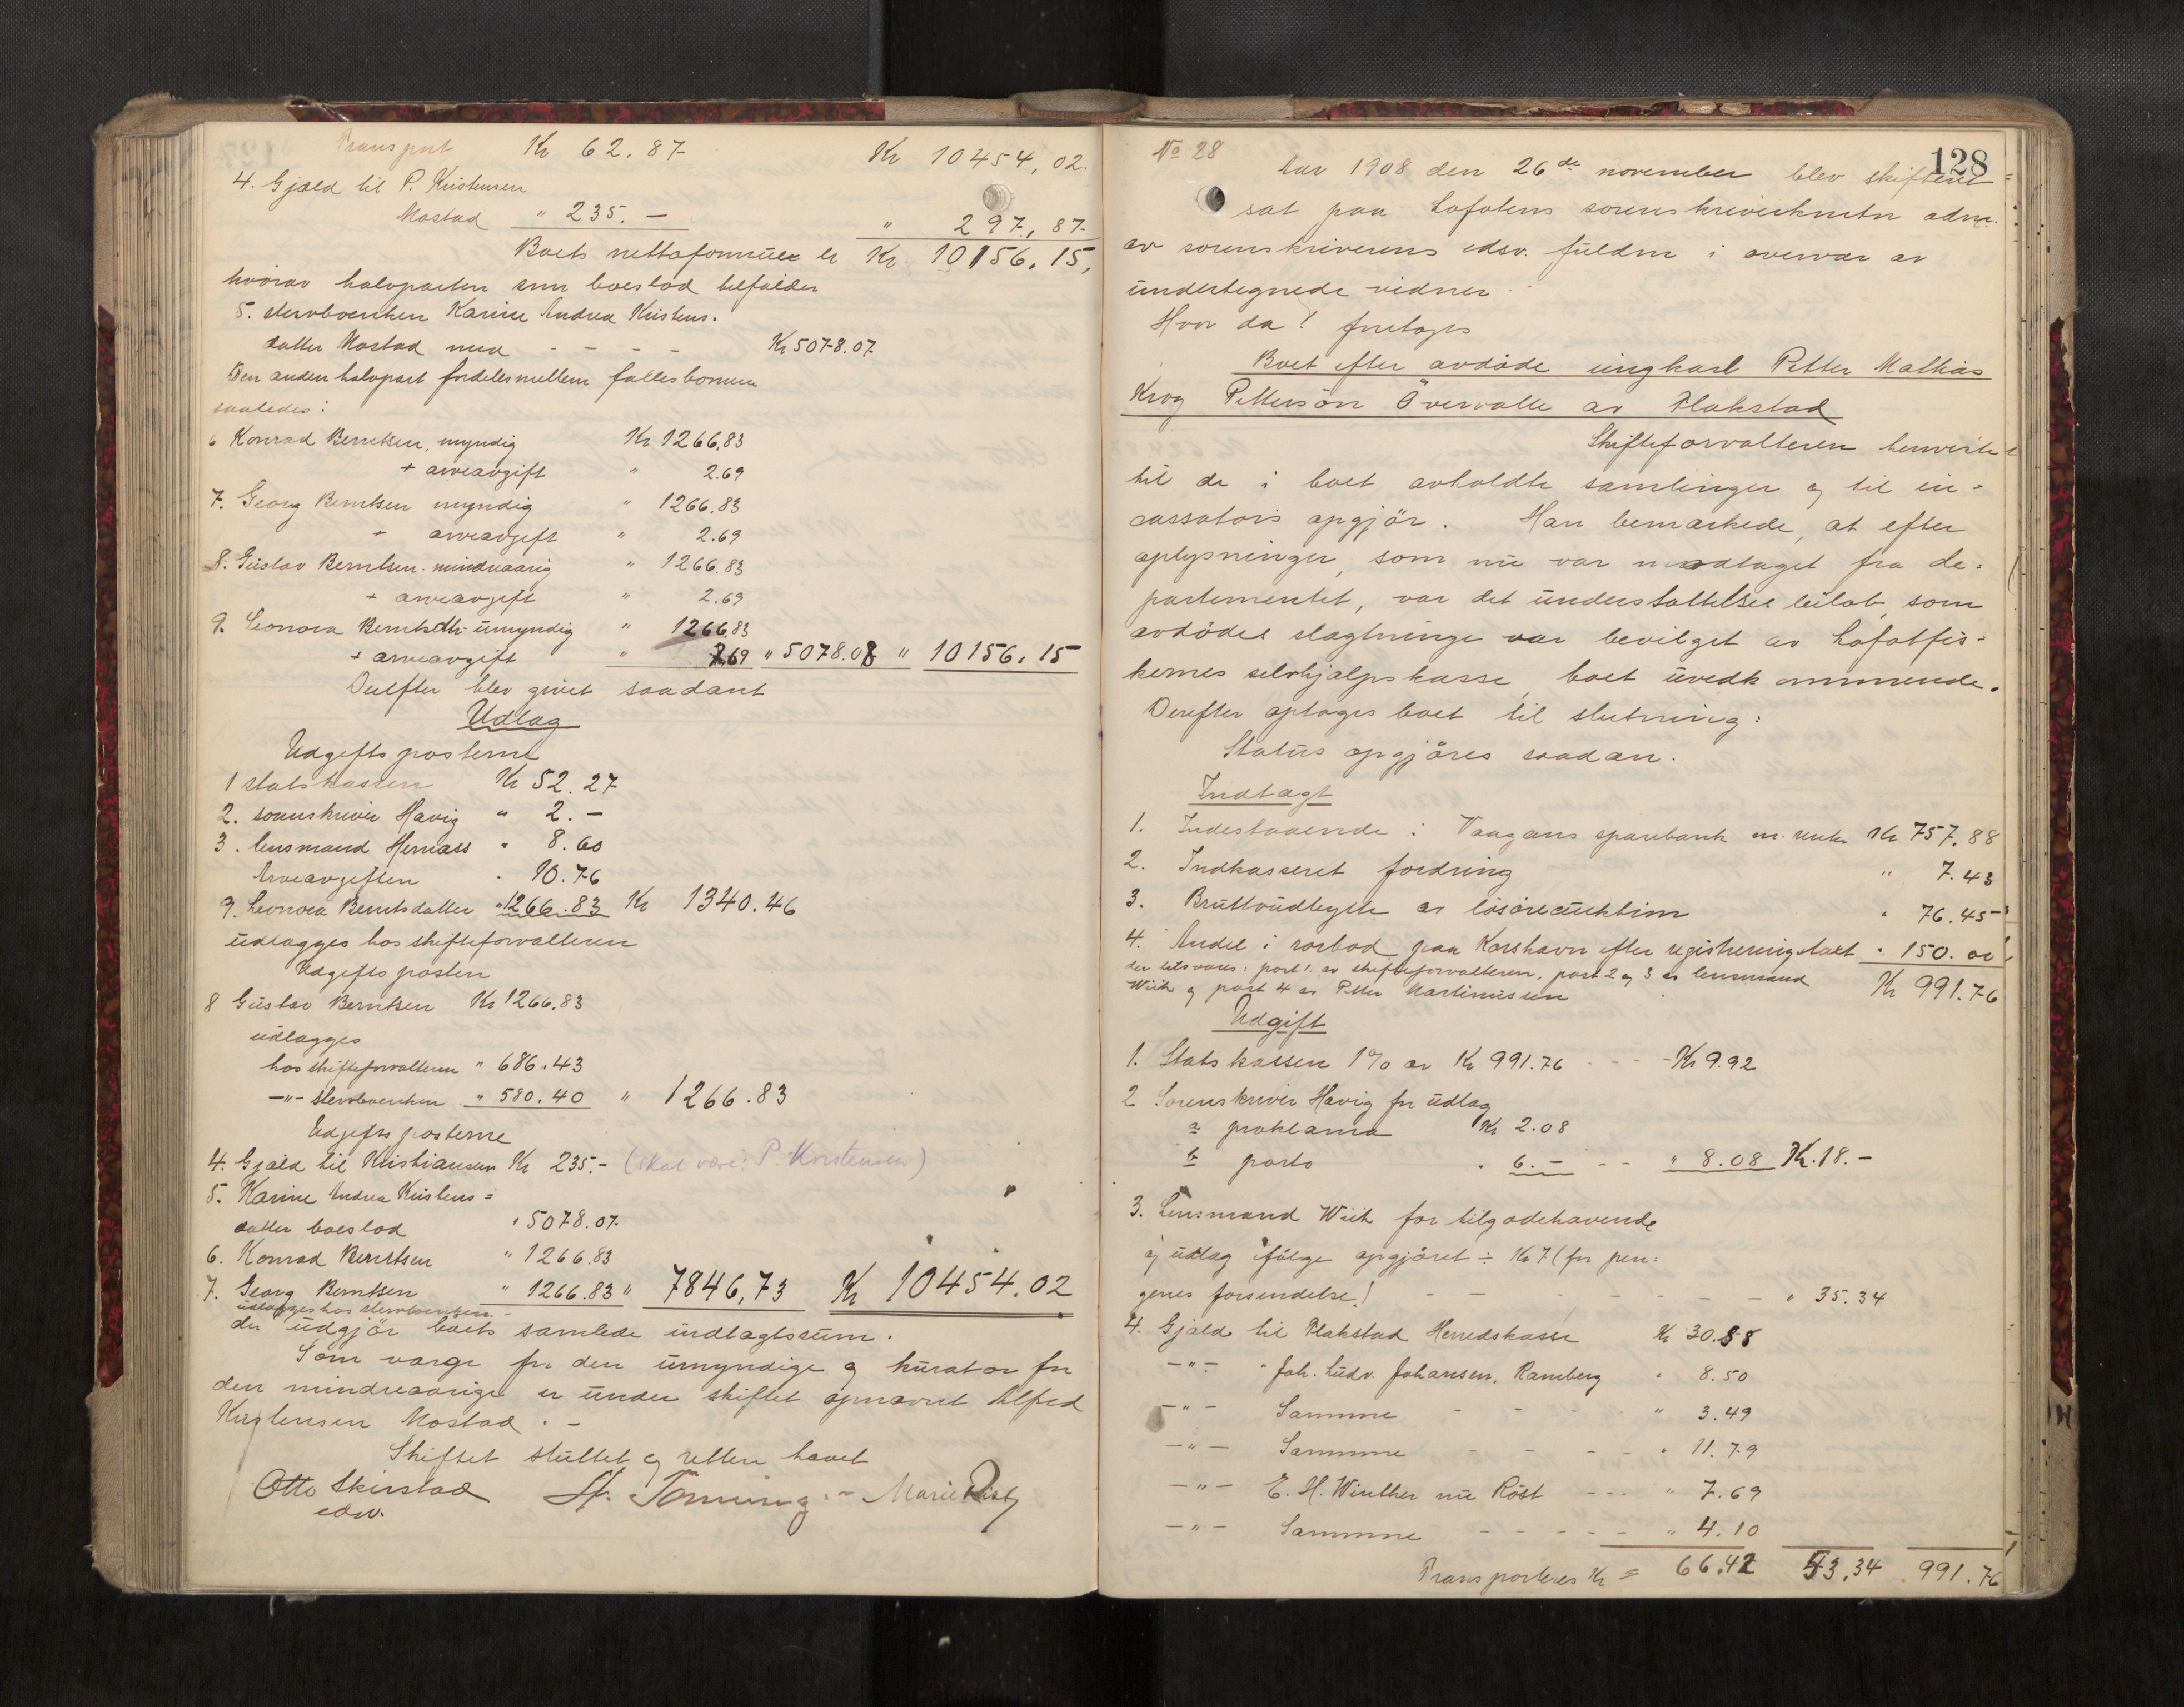 Transport Kr 62.87 Kr 10454,02.
4. Gjæld til P. Kristensen
Mostad " 235.— " 297,87
Boets nettoformue er Kr 10156.15,
hvorav halvparten som boeslod tilfalder
5. stervboenken Karine Andrea Kristens.
datter Mostad med - - - - Kr 5078.07
Den anden halvpart fordeles mellem fællesbørnene
saaledes:
6 Konrad Berntsen, myndig Kr 1266,83
+ arveavgift " 2.69
7. Georg Berntsen myndig " 1266.83
+ arveavgift " 2.69
8. Gustav Berntsen mindreaarig " 1266.83
+ arveavgift " 2.69
9. Leonora Berntsdtr umyndig " 1266,83
+ arveavgift " 2.69 " 5078.08 " 10156.15
Derefter blev givet saadant
Udlæg
Udgiftsposterne
1 statskassen Kr 52.27
2. sorenskriver Havig " 2.—
3. lensmand Hernæss " 8.60
Arveavgiften " 10.76
9. Leonora Berntsdatter " 1266.83 Kr 1340.46
udlægges hos skifteforvalteren
Udgiftsposten
8 Gustav Berntsen Kr 1266.83
udlægges
hos skifteforvalteren " 686.43
—"— stervboenken " 580.40 " 1266.83
Udgiftsposterne
4. Gjæld til Kristiansen Kr 235.- (skal være: P. Kristensen)
5. Karine Andrea Kristens=
datter boeslod " 5078.07
6. Konrad Berntsen " 1266.83
7. Georg Berntsen " 1266.83 " 7846,73 Kr 10454.02
udlægges hos stervboenken.
der udgjør boets samlede indtægtssum.
Som værge for den umyndige og kurator for
den mindreaarige er under skiftet opnævnt Alfred
Kristensen Mostad. —
Skiftet sluttet og retten hævet
Otto Skirstad St. Tønning.- Marie Rist
edsv.
No 28 128
Aar 1908 den 26de november blev skifteret=
sat paa Lofotens sorenskriverkontor adm.
av sorenskriverens edsv. fuldm i overvær av
undertegnede vidner.
Hvor da! foretoges
Boet efter avdøde ungkarl Petter Mathias
Krog Pettersøn Øvervolle av Flakstad
Skifteforvalteren henviste
til de i boet avholdte samlinger og til in=
cassators opgjør. Han bemærkede, at efter
oplysninger, som nu var modtaget fra de=
partementet, var det understøttelsesbeløb, som
avdødes slægtninge var bevilget av Lofotfis=
kernes selvhjælpskasse, boet uvedkommende.
Derefter optoges boet til slutning:
Status opgjøres saadan.
Indtægt
1. Indestaaende i Vaagans sparebank m. renter Kr 757.88
2. Indkasseret fordring " 7.43
3. Bruttoudbytte av løsøreauktion " 76.45
4. Andel i rorbod paa Karshavn efter registreringstakt " 150.00
der tilsvares: post 1. av skifteforvalteren, post 2 og 3 av lensmand
Wiik og post 4 av Petter Martinussen Kr 991.76
Udgift
1. Statskassen 1% av Kr 991.76 - - - Kr 9.92
2 Sorenskriver Havig for udlæg
a proklama Kr 2.08
b porto " 6.— - - " 8.08 Kr. 18.—
3. Lensmand Wiik for tilgodehavende
og udlæg ifølge opgjøret ÷ Kr 7 (for pen=
genes forsendelse) - - - - - - - " 35.34
4. Gjæld til Flakstad Herredskasse Kr 30.58
—"— " Joh. Ludv. Johansen, Ramberg " 8.50
—"— Samme - - - " 3.49
—"— Samme - - - - " 11.79
—"— E. H. Winther nu Røst - - - " 7.69
—"— Samme - - - - - " 4.10
Transporteres Kr = 66.42 53.34 991.76